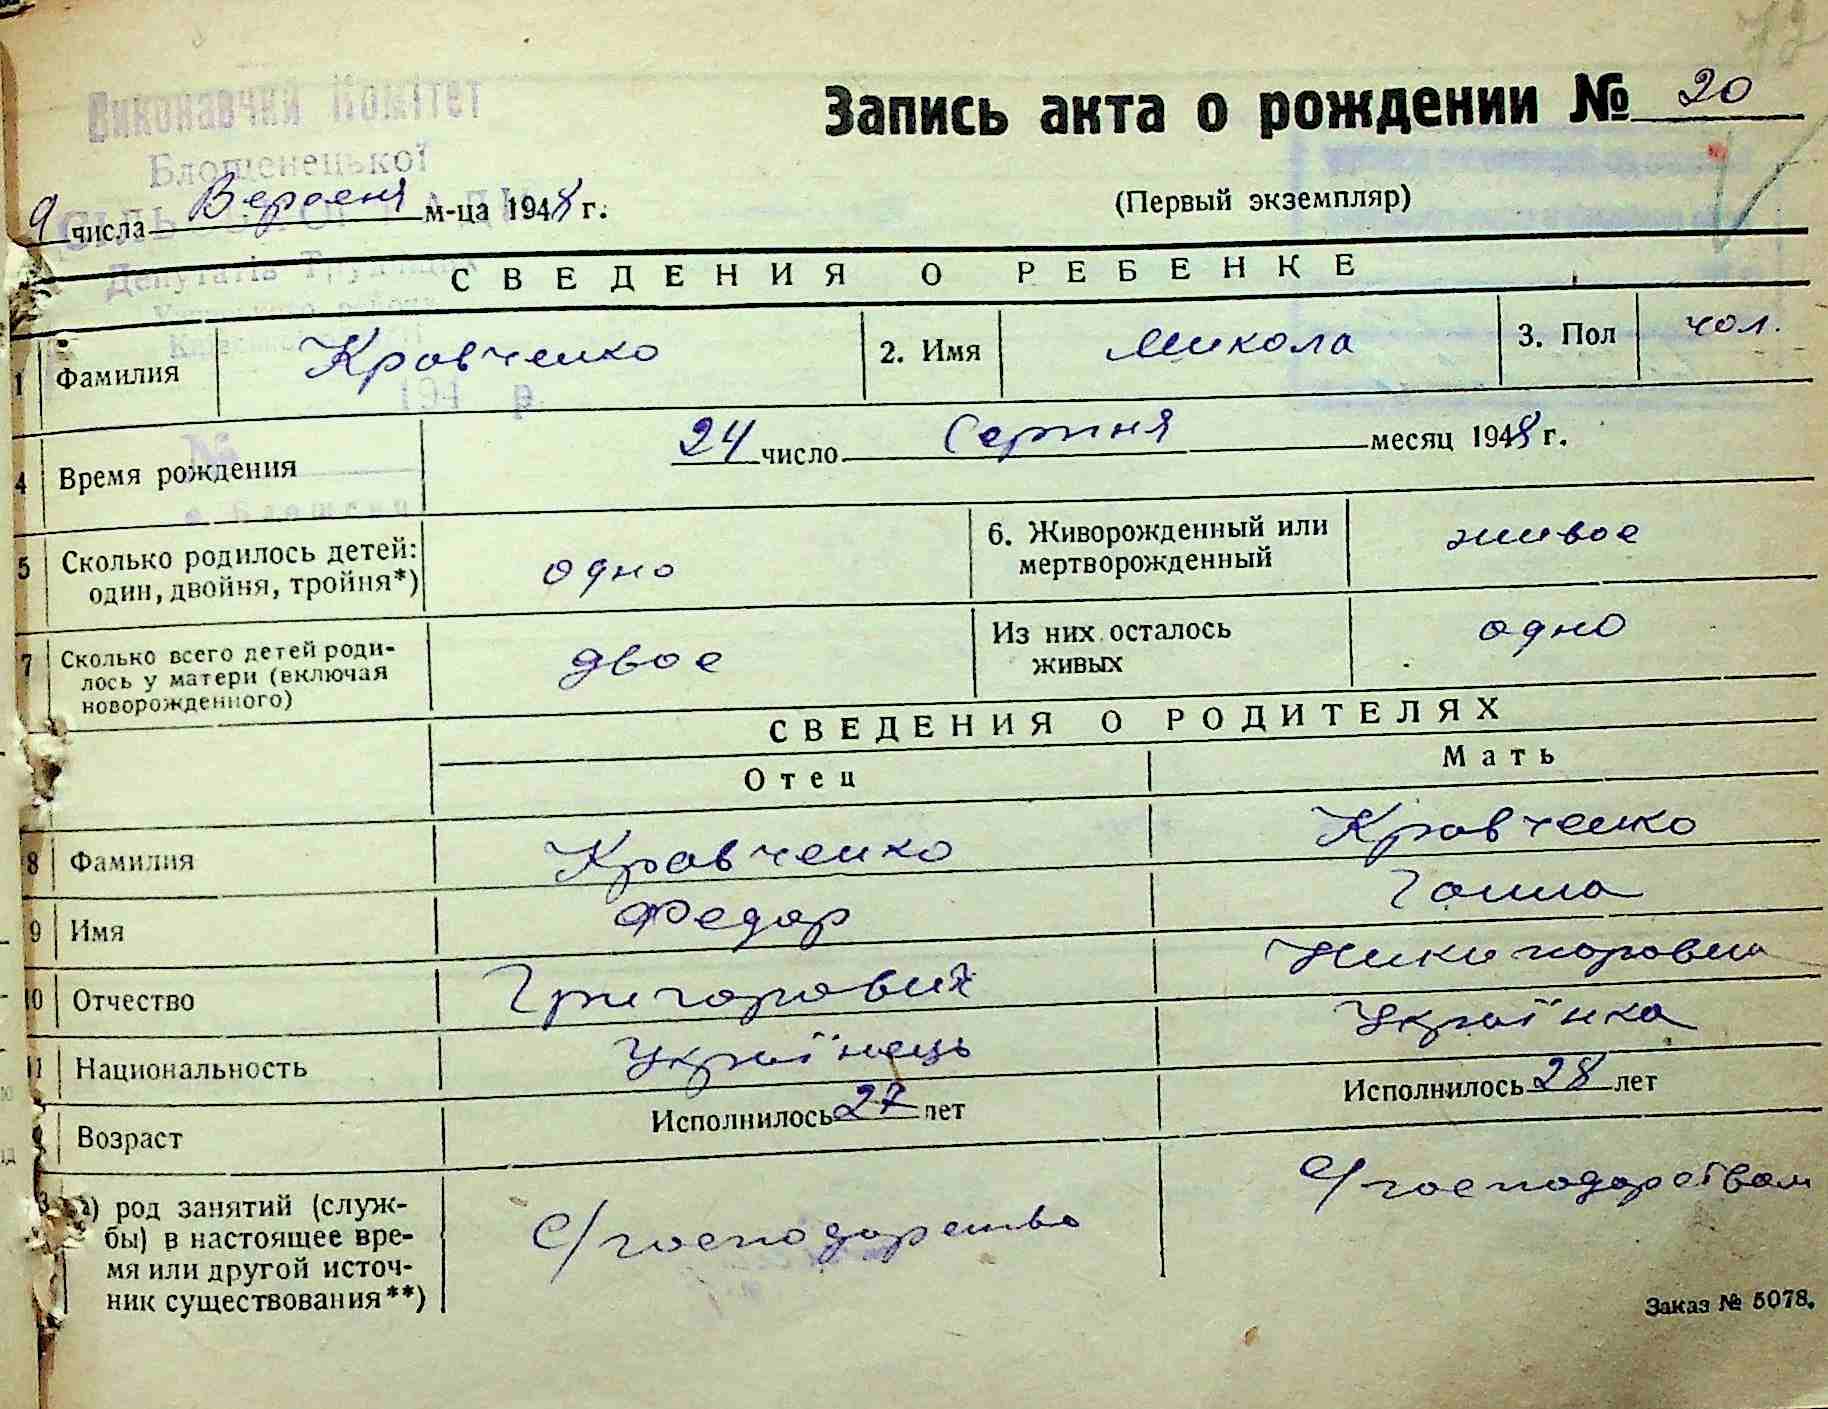 Виконавчий Комітет
Блощенецької
Депутатів Трудящих
194 р.
№
Запись акта о рождении № 20
(Первый экземпляр)
9 числа Вересня м-ца 1948 г.
СВЕДЕНИЯ О РЕБЕНКЕ
1 Фамилия Кравченко 2. Имя Микола 3. Пол чол.
4 Время рождения 24 число Серпня месяц 1948 г.
5 Сколько родилось детей: один, двойня, тройня*) одно 6. Живорожденный или мертворожденный живое
7 Сколько всего детей родилось у матери (включая новорожденного) двое Из них осталось живых одно
СВЕДЕНИЯ О РОДИТЕЛЯХ
Отец Мать
8 Фамилия Кравченко Кравченко
9 Имя Федор Ганна
10 Отчество Григорович Никипоровна
11 Национальность Українець Українка
Возраст Исполнилось 27 лет Исполнилось 28 лет
3 а) род занятий (служ-
бы) в настоящее вре-
мя или другой источ-
ник существования**)
С/господарство С/господарством
Заказ № 5078.